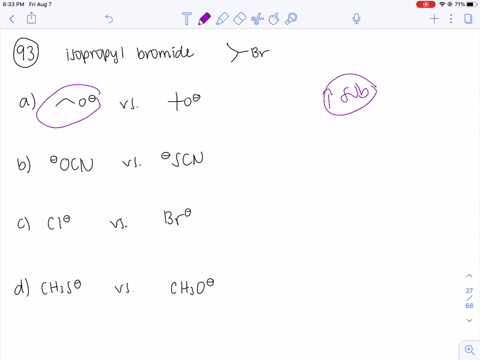 6:33 PM Fri Aug 7
71%
93 isopropyl bromide Br
↑ sub
a) O⊖ vs. O⊖
b) ⊖OCN vs. ⊖SCN
c) Cl⊖ vs. Br⊖
d) CH3S⊖ vs. CH3O⊖
27
/
66